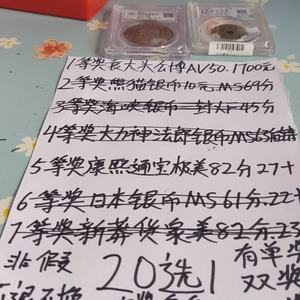 1等奖袁大头公博AU50.1700元
2等奖熊猫银币10元.MS69分
3等奖海峡银币一封大F45分
4等奖大力神法郎银币MS65
5等奖康熙通宝极美82分27+
6等奖日本银币MS61分.22+
7等奖新莽货泉美82分23
非假 20选1 有单奖
双奖
不退不换